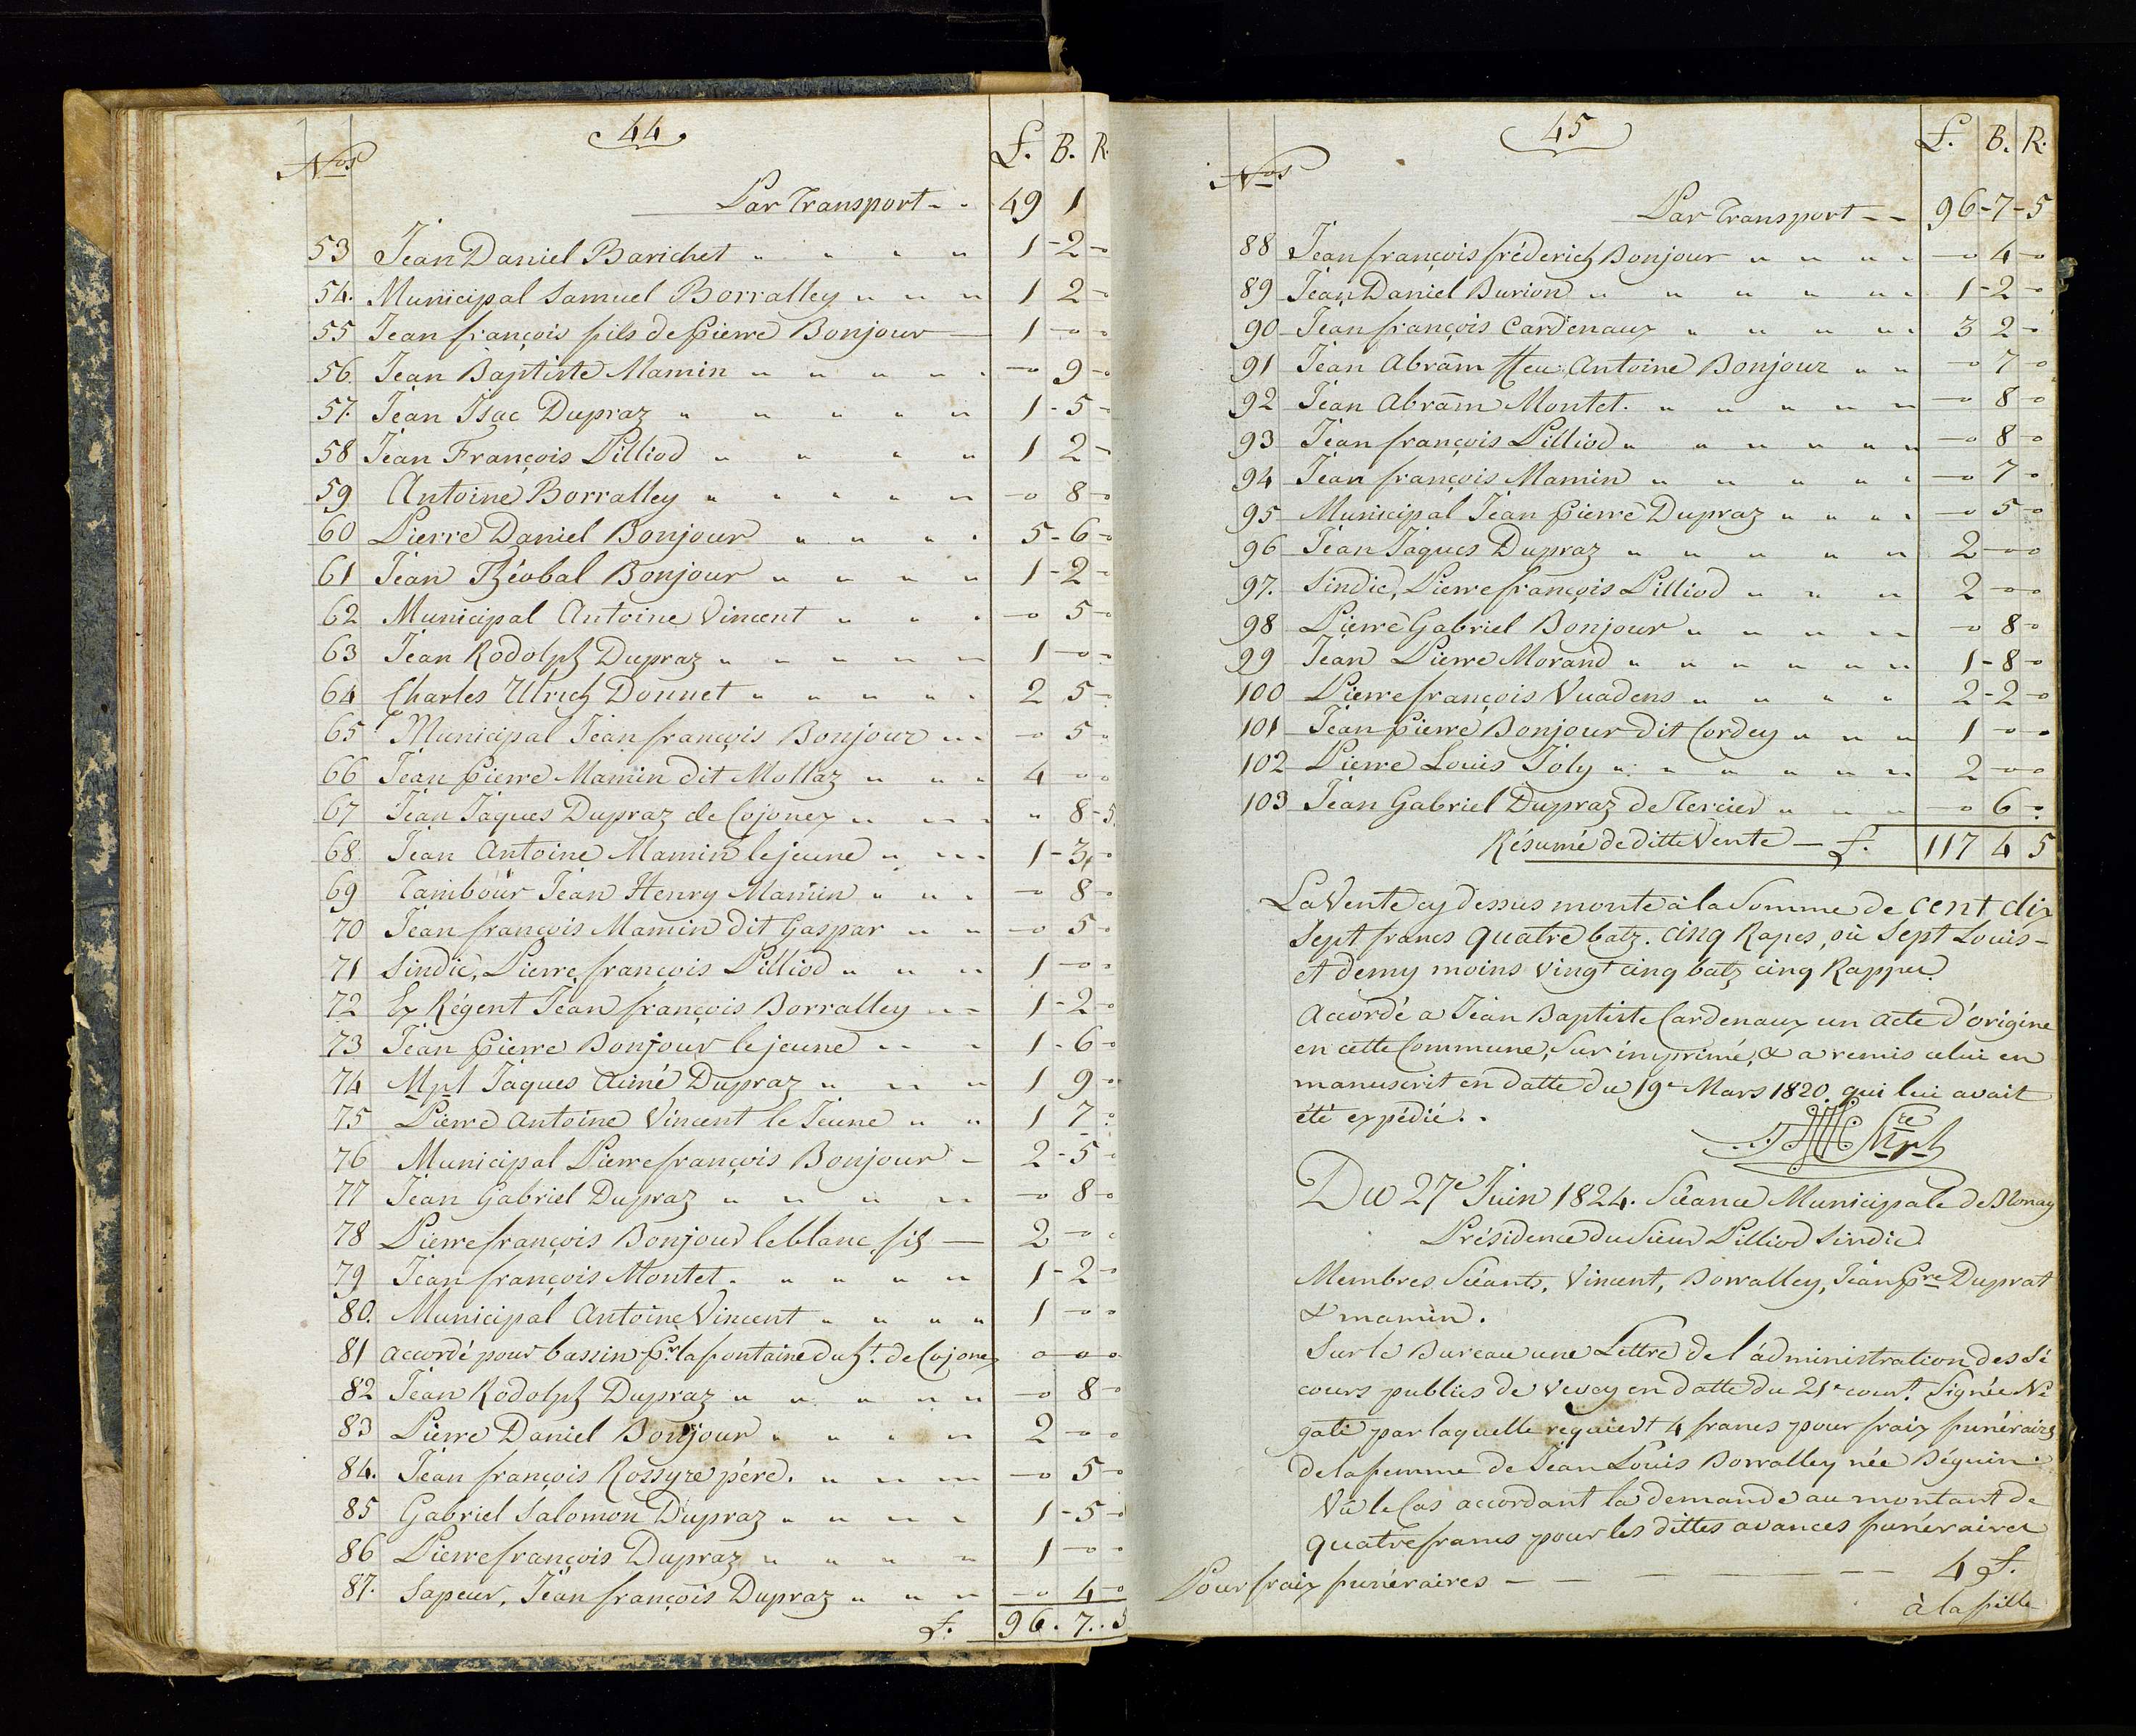 44
Nos L. B. R.
Par Transport - - 49 1
53 Jean Daniel Barichet " " " " 1 - 2 - o
54. Municipal Samuel Borralley " " " 1 2 - o
55 Jean françois fils de Pierre Bonjour — 1 - o - o
56. Jean Baptiste Mamin " " " " " - o 9 - o
57. Jean Isac Dupraz " " " " " 1 - 5 -
58 Jean François Pilliod " " " " 1 2 -
59 Antoine Borralley " " " " " - o 8 - o
60 Pierre Daniel Bonjour " " " " 5 - 6 - o
61 Jean Théobal Bonjour " " " " 1 - 2 -
62 Municipal Antoine Vincent " " " - o 5 - o
63 Jean Rodolph Dupraz " " " " " 1 - o - o
64 Charles Ulrich Donnet " " " " " 2 5 - o
65 Municipal Jean françois Bonjour " " - o 5 - o
66 Jean Pierre Mamin dit Mollaz " " " 4 - o o
67 Jean Jaques Dupraz de Cojonex " " " " 8 - 5
68. Jean Antoine Mamin le jeune " " " 1 - 3 - o
69 Tambour Jean Henry Mamin " " " - o 8 - o
70 Jean françois Mamin dit Gaspar " " - o 5 - o
71 Sindic, Pierre françois Pilliod " " " 1 - o o
72 Ex Régent Jean françois Borralley " " 1 - 2 - o
73 Jean Pierre Bonjour le jeune " " " 1 - 6 - o
74 Mpl Jaques Aimé Dupraz " " " 1 9 - o
75 Pierre Antoine Vincent le Jeune " " 1 7 -
76 Municipal Pierre françois Bonjour - 2 - 5 -
77 Jean Gabriel Dupraz " " " " - o 8 - o
78 Pierre françois Bonjour le blanc, fils — 2 - o o
79 Jean françois Montet. " " " " 1 - 2 - o
80. Municipal Antoine Vincent " " " " 1 - o o
81 accordé pour bassin Pr. la fontaine du ht. de Cojonex o - o - o
82 Jean Rodolph Dupraz " " " " " - o 8 - o
83 Pierre Daniel Bonjour " " " " 2 - o o
84. Jean françois Rossyre père. " " " - o 5 - o
85 Gabriel Salomon Dupraz " " " " 1 - 5 - o
86 Pierre françois Dupraz " " " " 1 - o o
87. Sapeur, Jean françois Dupraz " " " - o 4 - o
L. 96. 7. . 5
45
Nos L. B. R.
Par Transport - - 96 - 7 - 5
88 Jean françois fréderich Bonjour " " " " - o 4 - o
89 Jean Daniel Burion " " " " " " 1 - 2 - o
90 Jean françois Cardenaux " " " " " 3 2 - o
91 Jean Abram ffeu Antoine Bonjour " " - o 7 - o
92 Jean Abram Montet. " " " " " " - o 8 - o
93 Jean françois Pilliod " " " " " " - o 8 - o
94 Jean françois Mamin " " " " " - o 7 - o
95 Municipal Jean Pierre Dupraz " " " " - o 5 - o
96 Jean Jaques Dupraz " " " " " 2 - o o
97. Sindic, Pierre françois Pilliod " " " 2 - o o
98 Pierre Gabriel Bonjour " " " " " - o 8 - o
99 Jean Pierre Morand " " " " " " 1 - 8 - o
100 Pierre françois Vuadens " " " " 2 - 2 - o
101 Jean Pierre Bonjour dit Cordey " " " 1 - o - o
102 Pierre Louis Joly " " " " " " 2 - o o
103 Jean Gabriel Dupraz de Tercier " " " - o 6 - o
Résumé de ditte Vente — L. 117 4 5
La Vente cy dessus monte à la Somme de cent dix
Sept francs quatre batz. cinq Rapes, ou Sept Louis -
et demy moins vingt cinq batz cinq Rappes.
Accordé a Jean Baptiste Cardenaux un acte d'origine
en cette Commune, Sur imprimé, & a remis celui en
manuscrit en datte du 19e Mars 1820. qui lui avait
été expédié. .
Du 27e Juin 1824. Séance Municipale de Blonay
Présidence du Sieur Pilliod Sindic.
Membres Séants, Vincent, Borralley, Jean Pre Duprat
& mamin.
Sur le Bureau une Lettre de l'administration des Sé
cours publics de Vevey en datte du 21e court. Signée Né
gati par laquelle requiert 4 francs pour fraix funéraires
de la femme de Jean Louis Borralley née Béguin.
Vû le Cas accordant la demande au montant de
quatre francs pour les dittes avances funéraires
Pour fraix funéraires — — — — — — 4 f.
à la fille